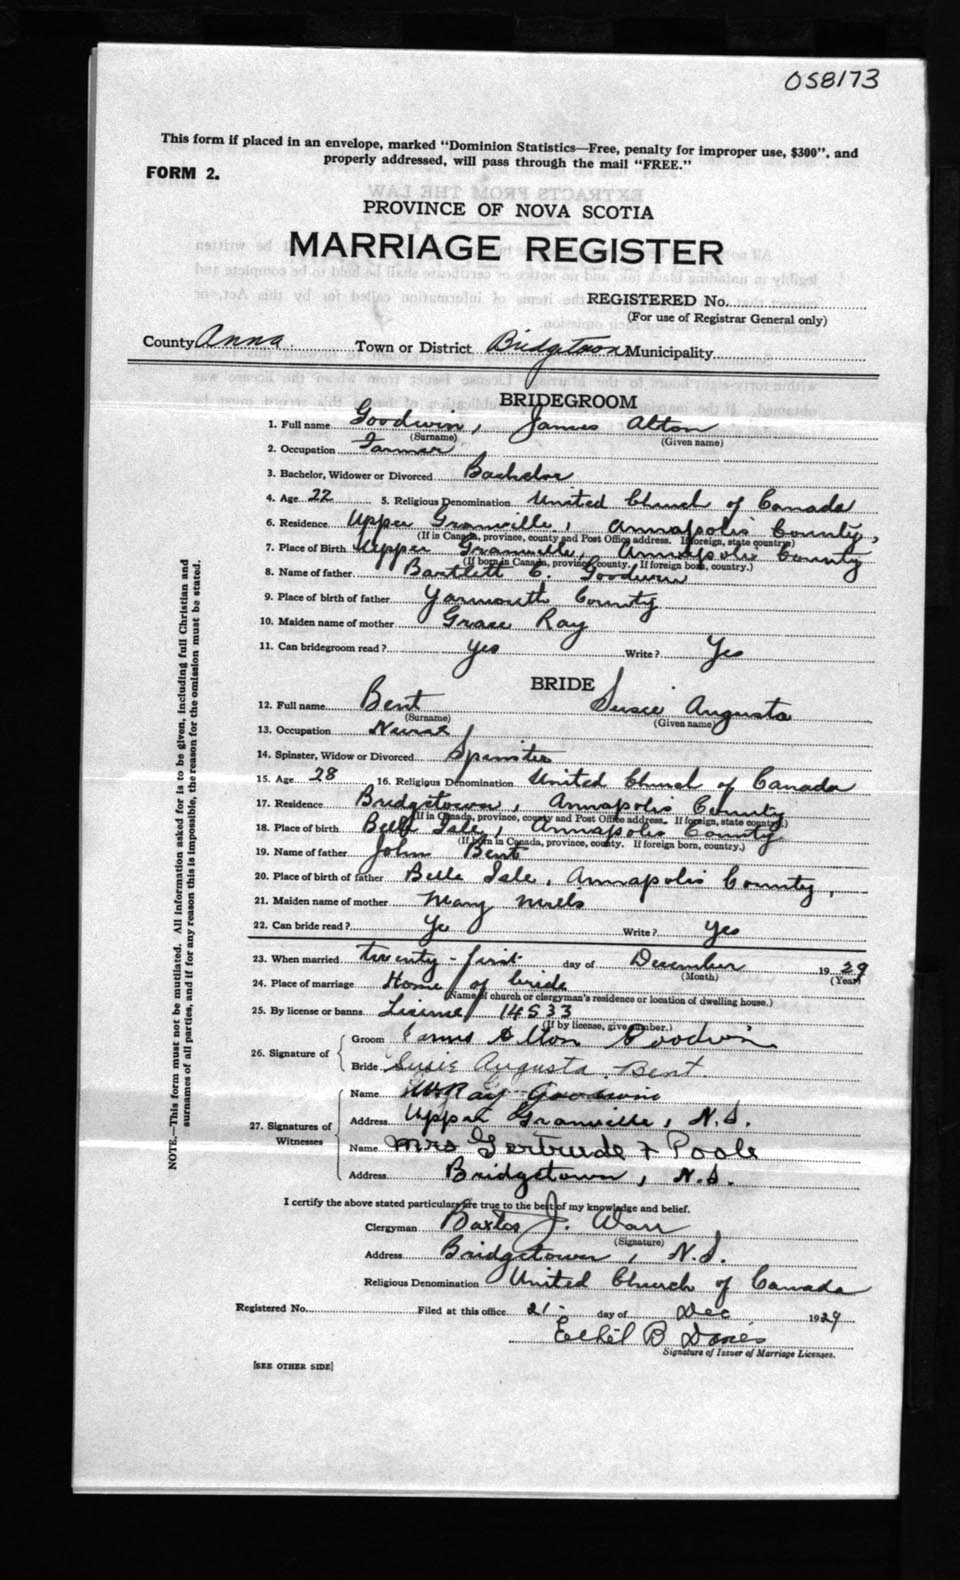 058173
This form if placed in an envelope, marked "Dominion Statistics—Free, penalty for improper use, $300", and
properly addressed, will pass through the mail "FREE."
FORM 2.
PROVINCE OF NOVA SCOTIA
MARRIAGE REGISTER
REGISTERED No.
(For use of Registrar General only)
County Anna Town or District Bridgetown Municipality
BRIDEGROOM
1. Full name Goodwin, James Alton
(Surname) (Given name)
2. Occupation Farmer
3. Bachelor, Widower or Divorced Bachelor
4. Age 22 5. Religious Denomination United Church of Canada
6. Residence Upper Granville, Annapolis County,
(If in Canada, province, county and Post Office address. If foreign, state country)
7. Place of Birth Upper Granville, Annapolis County
(If born in Canada, province, county. If foreign born, country.)
8. Name of father Bartlett C. Goodwin
9. Place of birth of father Yarmouth County
10. Maiden name of mother Grace Ray
11. Can bridegroom read? Yes Write? Yes
BRIDE
12. Full name Bent Susie Augusta
(Surname) (Given name)
13. Occupation Nurse
14. Spinster, Widow or Divorced Spinster
15. Age 28 16. Religious Denomination United Church of Canada
17. Residence Bridgetown, Annapolis County
(If in Canada, province, county and Post Office address. If foreign, state country.)
18. Place of birth Belle Isle, Annapolis County
(If born in Canada, province, county. If foreign born, country.)
19. Name of father John Bent
20. Place of birth of father Belle Isle, Annapolis County,
21. Maiden name of mother Mary
22. Can bride read? Yes Write? Yes
23. When married twenty-first day of December 1929
(Month) (Year)
24. Place of marriage Home of bride
(Name of church or clergyman's residence or location of dwelling house.)
25. By license or banns License 14533
(If by license, give number.)
26. Signature of
Groom James Alton Goodwin
Bride Susie Augusta Bent
27. Signatures of Witnesses
Name Ray Goodwin
Address Upper Granville, N.S.
Name Mrs Gertrude F Poole
Address Bridgetown, N.S.
I certify the above stated particulars are true to the best of my knowledge and belief.
Clergyman J.
(Signature)
Address Bridgetown, N.S.
Religious Denomination United Church of Canada
Registered No. Filed at this office 21 day of Dec 1929
Ethel B
Signature of Issuer of Marriage Licenses.
[SEE OTHER SIDE]
NOTE.—This form must not be mutilated. All information asked for is to be given, including full Christian and
surnames of all parties, and if for any reason this is impossible, the reason for the omission must be stated.